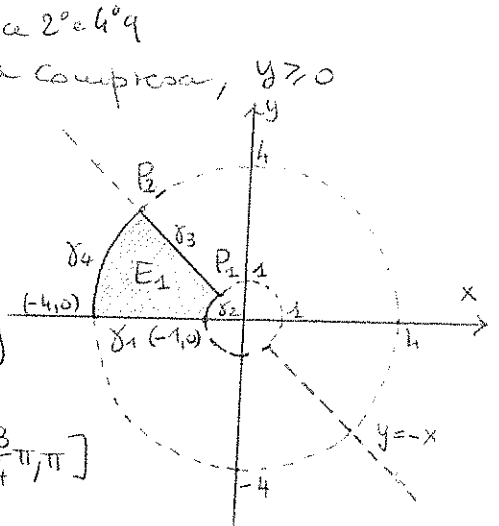 a 2° e 4° q
compresa, y ≥ 0
y
4
P₂
γ₃
P₁
1
γ₄
E₁
x
(-4,0)
γ₂
1
γ₁
(-1,0)
4
]
π, π]
y=-x
-4